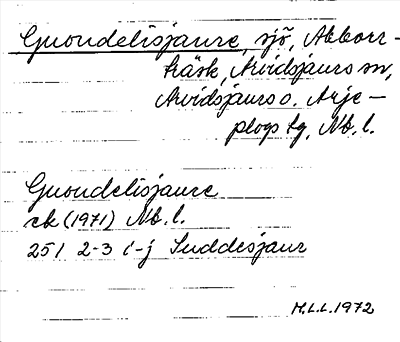 Guondelisjaure, sjö, Abborr-
träsk, Arvidsjaurs sn,
Arvidsjaurs o. Arje-
plogs tg, Nb. l.
Guondelisjaure
ek (1971) Nb. l.
25 I 2-3 i-j Suddesjaur
M.L.L. 1972